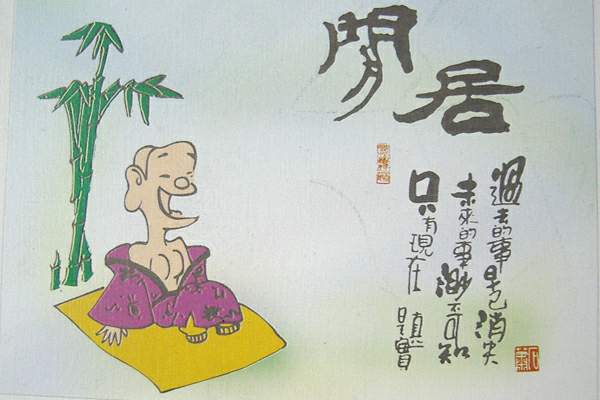 閒居
過去的事早已消失
未來的事渺不可知
只有現在是真實